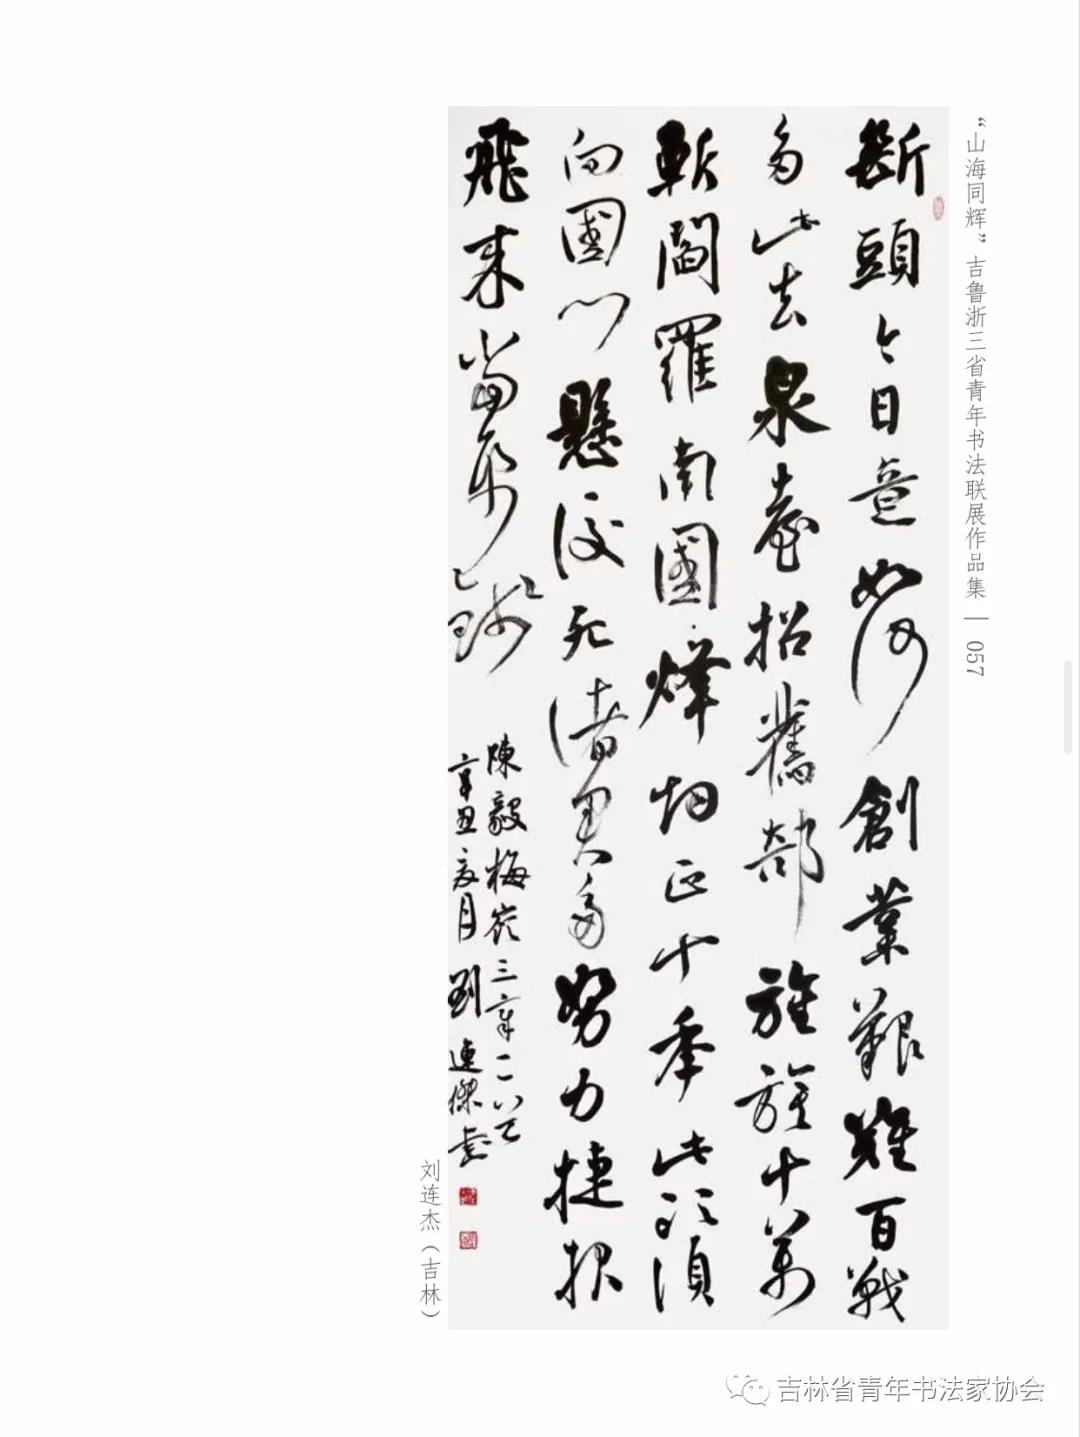 “山海同辉”吉鲁浙三省青年书法联展作品集 | 057
斷頭今日意如何創業艱難百戰
多此去泉臺招舊部旌旗十萬
斬閻羅南國烽烟正十年此頭須
向國門懸後死諸君多努力捷報
飛來當紙錢
陳毅梅嶺三章二
辛丑夏月劉連傑書
刘连杰（吉林）
吉林省青年书法家协会